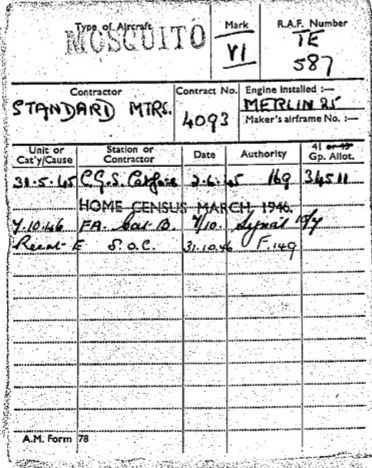 Type of Aircraft
MOSQUITO
Mark
VI
R.A.F. Number
TE
587
Contractor
STANDARD MTRS.
Contract No.
4093
Engine installed :—
MERLIN 25
Maker's airframe No. :—
Unit or
Cat'y/Cause
Station or
Contractor
Date
Authority
41 or 43
Gp. Allot.
31·5·45 C.G.S. 2·6·45 169 34511
HOME CENSUS MARCH, 1946.
7.10.46 FA. Cat B. 7/10
Recat-E S.o.C. 31.10.46 F.149
A.M. Form 78